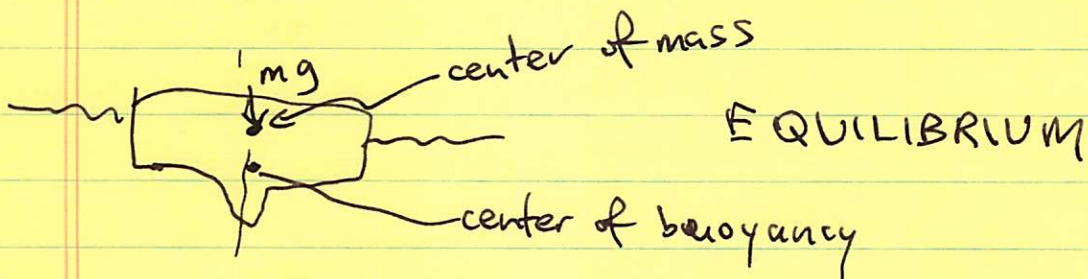 center of mass
mg
EQUILIBRIUM
center of buoyancy